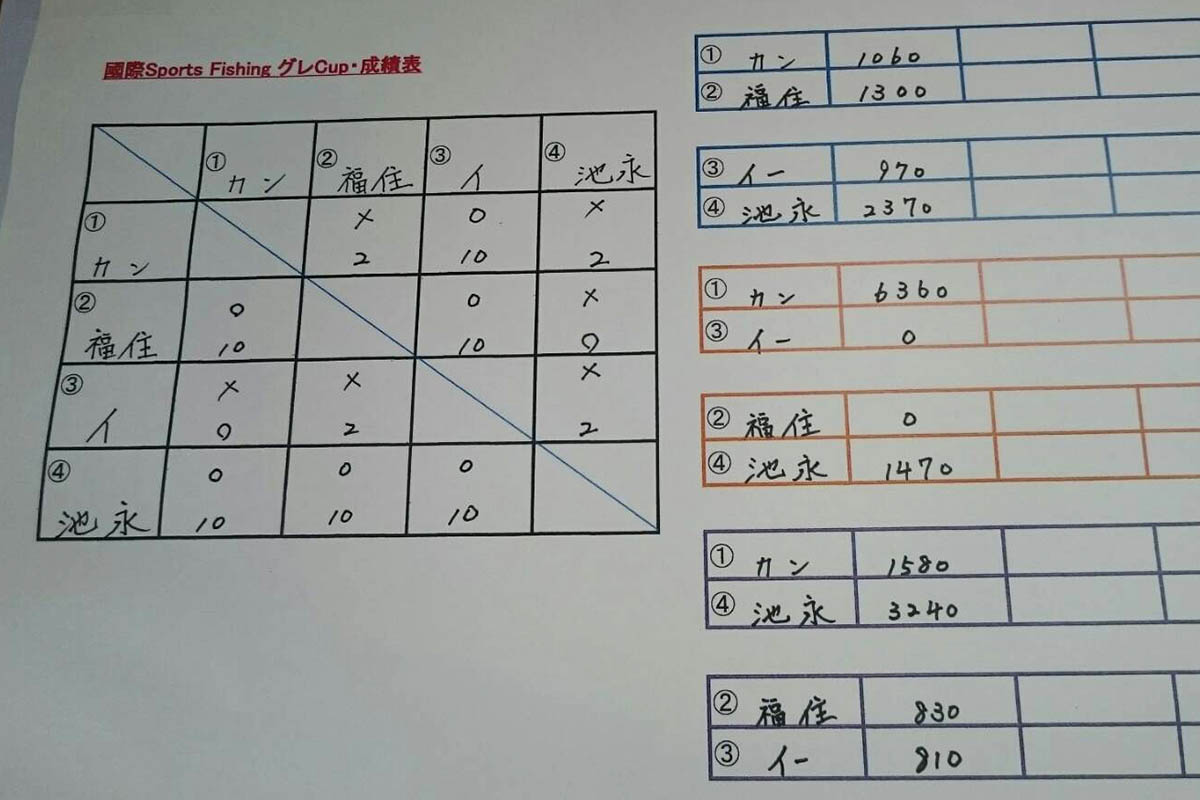 國際Sports Fishing グレCup・成績表
① カン ② 福住 ③ イ ④ 池永
① カン × 2 0 10 × 2
② 福住 0 10 0 10 × 0
③ イ × 0 × 2 × 2
④ 池永 0 10 0 10 0 10
① カン 1060
② 福住 1300
③ イー 970
④ 池永 2370
① カン 6360
③ イー 0
② 福住 0
④ 池永 1470
① カン 1580
④ 池永 3240
② 福住 830
③ イー 810